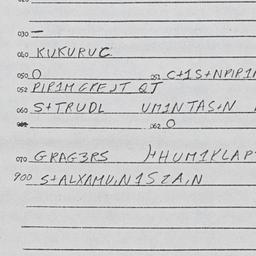 030 —
040 KUKURUC
050 O 051 C+1S+NPIP1
052 PIP1MCKEJT QT
060 S+TRUDL UM1NTAS+N
062 O
070 GRAG3RS HHUM1KLAP
900 S+ALXAMU,N1SZA,N